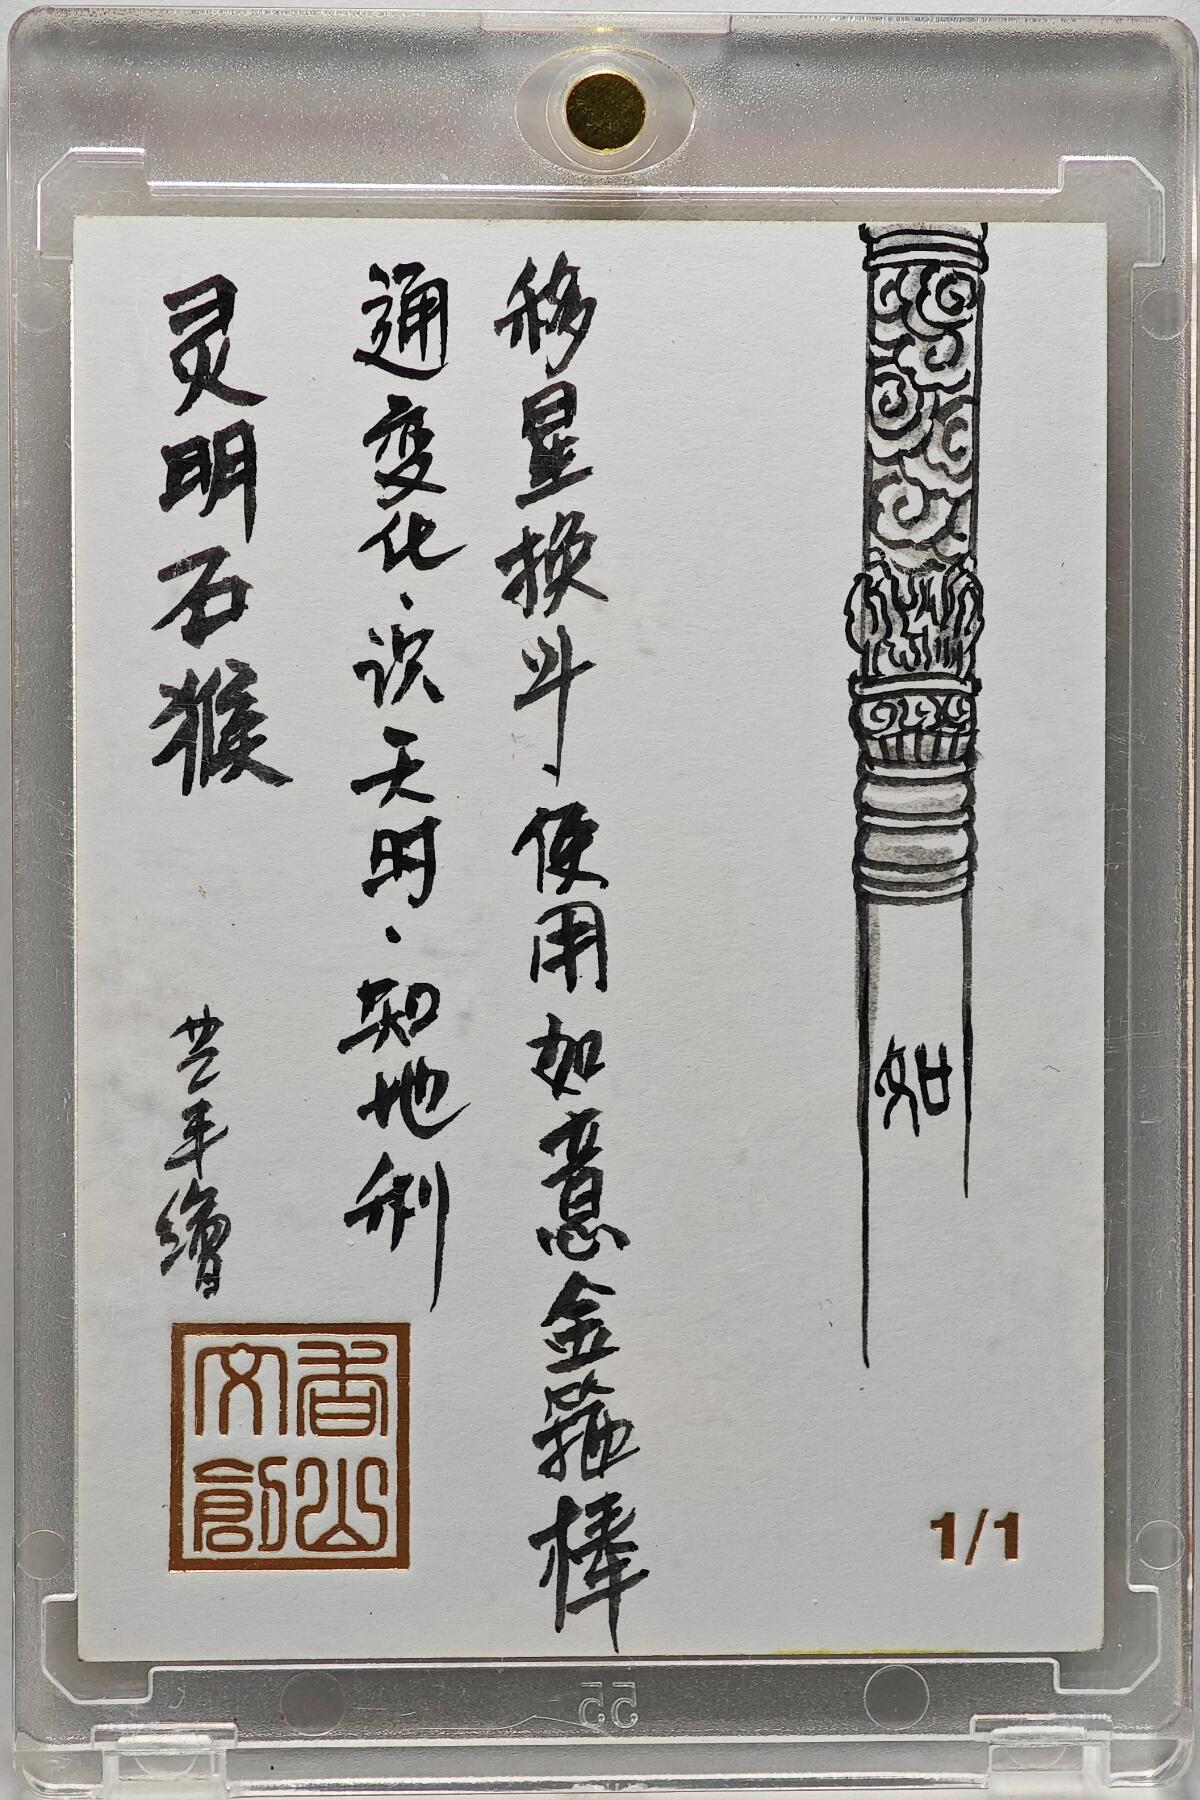 如
移星换斗·使用如意金箍棒
通变化·识天时·知地利
灵明石猴
绘
香山
文創
1/1
55